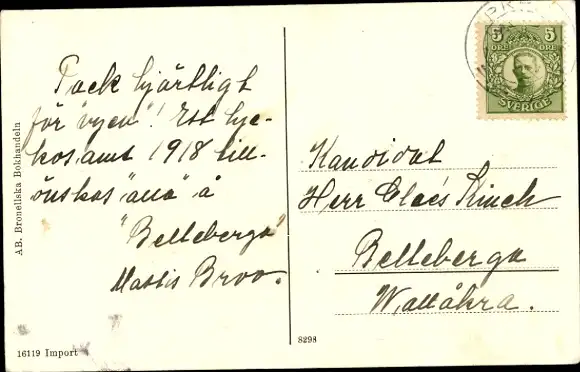 Tack hjärtligt
för "vyen"! Ett lyc-
kosamt 1918 till-
önskas "alla" å
"Belleberga"
Mattis Broo.
AB. Bronellska Bokhandeln
16119 Import
8298
5 5
ÖRE ÖRE
SVERIGE
Kandidat
Herr Claës Kinch
Belleberga
Wallåkra.